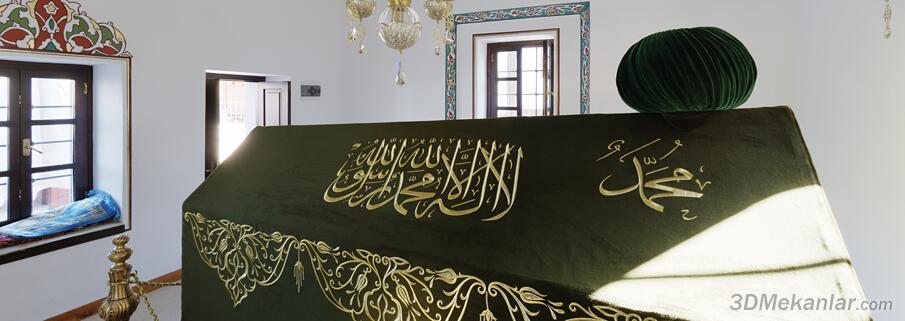 لا اله الا الله محمد رسول الله
محمد
3DMekanlar.com